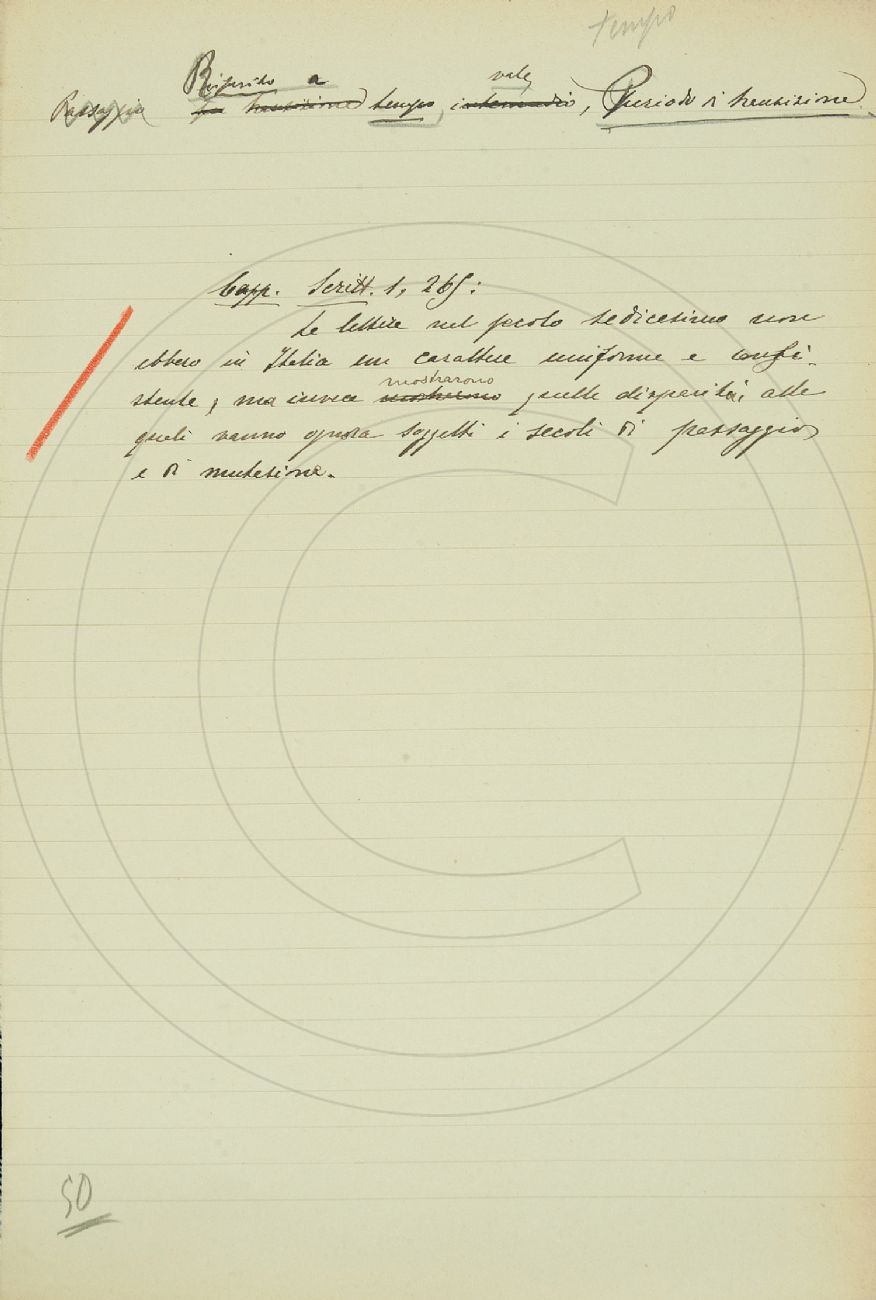 tempo
Riferito a vale
Passaggio tempo, intermedio, Periodo di transizione.
Capp. Scritt. 1, 265:
Le lettere nel secolo sedicesimo non
ebbero in Italia un carattere uniforme e consi-
mostrarono
stente, ma invece mostrarono quelle disparità, alle
quali vanno ognora soggetti i secoli di passaggio
e di mutazione.
50